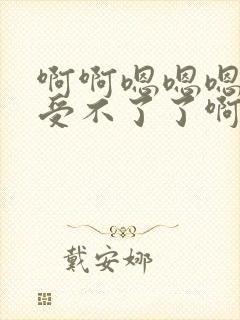 啊啊嗯嗯嗯
受不了了啊
戴安娜